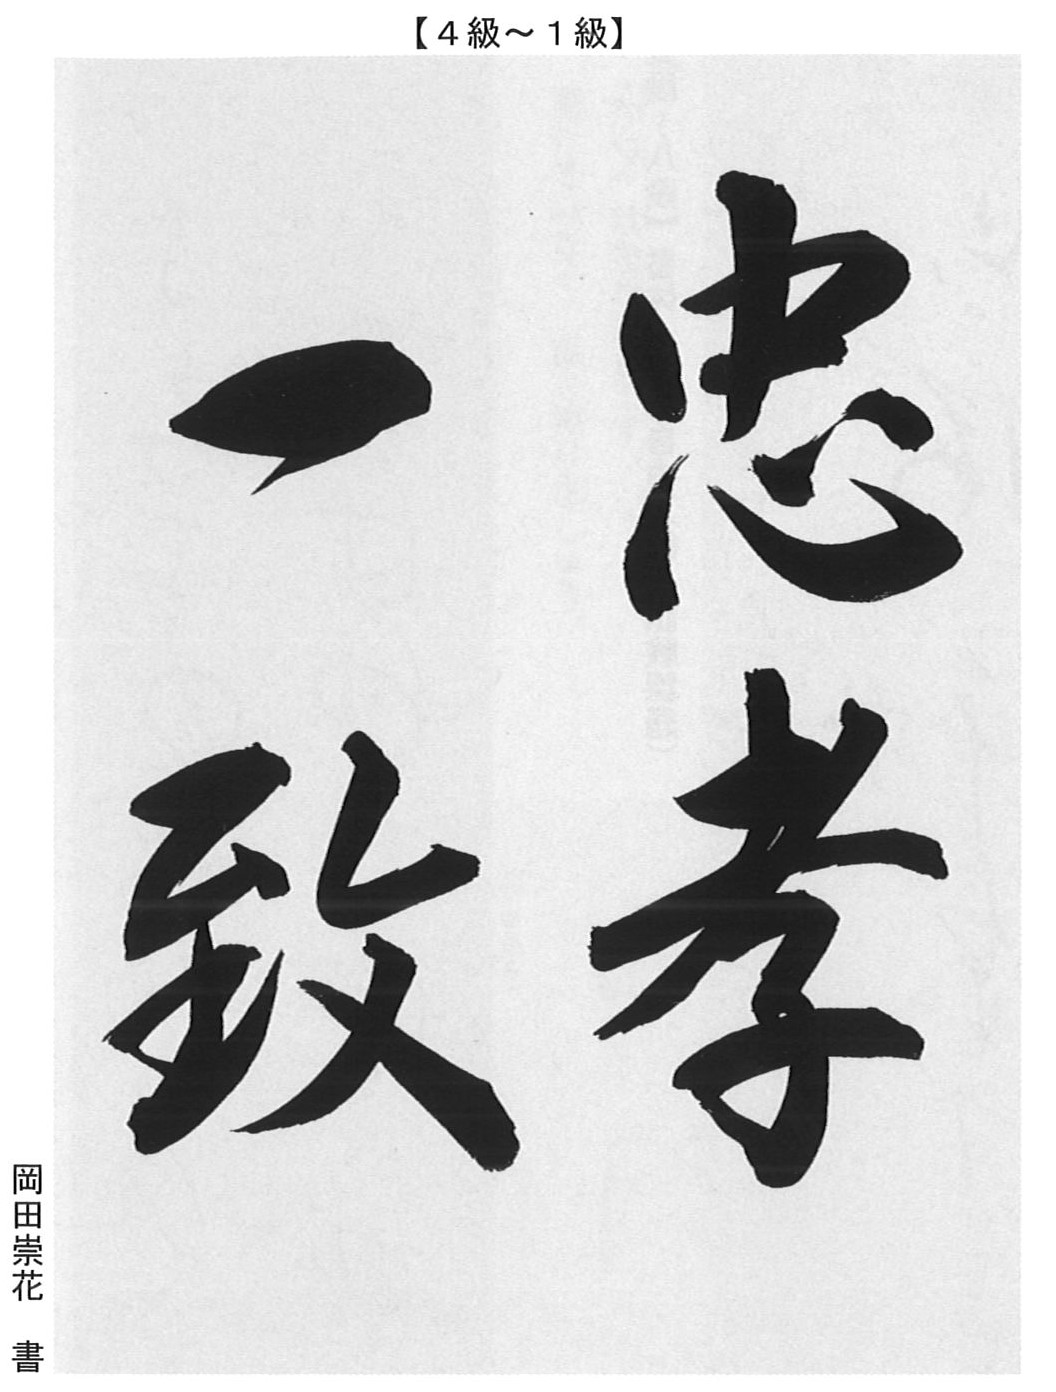 【４級～１級】
忠孝
一致
岡田崇花　書